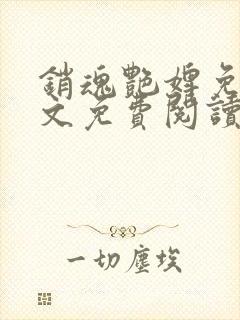 銷魂艷婢免
文免費閱讀
一切塵埃